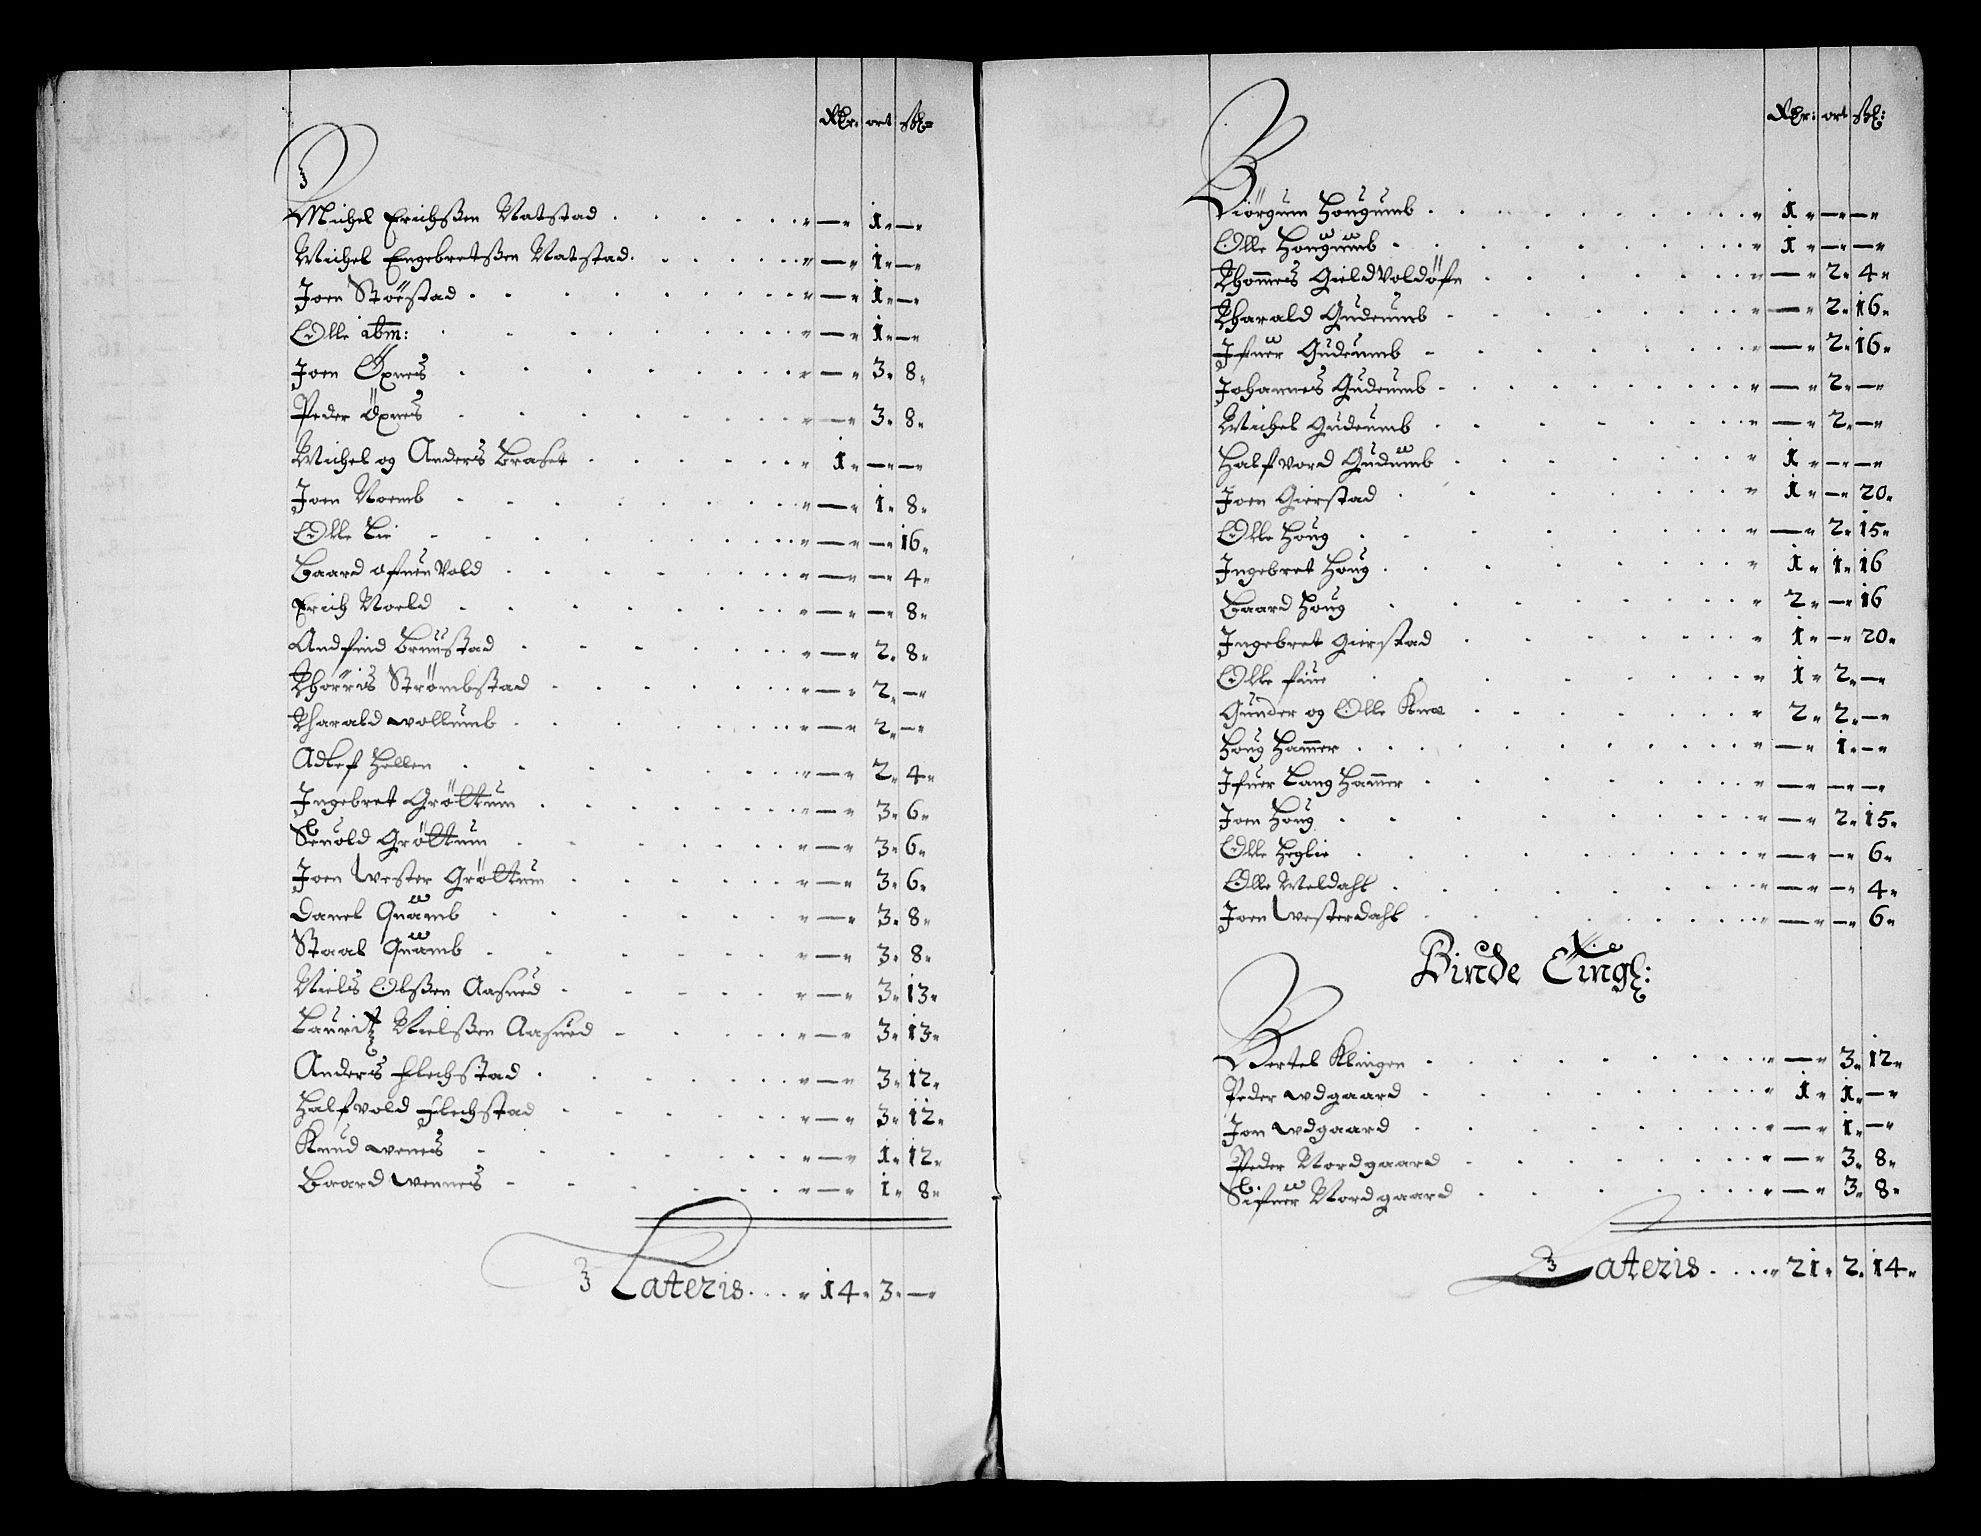 Rdr: ort sk:
Michel Erichsen Natstad . . . . . — 1 —
Michel Engebretsen Natstad . . . . — 1 —
Joen Stöistad . . . . . — 1 —
Olle ibm: . . . . . — 1 —
Joen Öxnes . . . . . — 3 8
Peder Öxnes . . . . . — 3 8
Michel og Anders Braset . . . . . 1 — —
Joen Noemb . . . . . — 1 8
Olle Lie . . . . . — — 16
Baard ofuen Vold . . . . . — — 4
Erich Noeld . . . . . — — 8
Andfind Brustad . . . . . — 2 8
Thorris Strömbstad . . . . . — 2 —
Tharald Wollumb . . . . . — 2 —
Adlef Hellen . . . . . — 2 4
Ingebret Gröttum . . . . . — 3 6
Seuold Gröttum . . . . . — 3 6
Joen Wester Gröttum . . . . . — 3 6
Danel Quamb . . . . . — 3 8
Staal Quamb . . . . . — 3 8
Niels Olssen Aasued . . . . . — 3 13
Lauritz Nielssen Aasued . . . . . — 3 13
Anders Flechstad . . . . . — 3 12
Halfvold Flechstad . . . . . — 3 12
Knud Wenes . . . . . — 1 12
Baard Wennes . . . . . — 1 8
Lateris . . . . 14 3 —
Rdr: ort sk:
Biörgum Hougumb . . . . . 1 — —
Olle Hougumb . . . . . 1 — —
Thommes Gieldvoldöfn . . . . . — 2 4
Tharald Gudeumb . . . . . — 2 16
Ifuer Gudeumb . . . . . — 2 16
Johannes Gudeumb . . . . . — 2 —
Michel Gudeumb . . . . . — 2 —
Halfvord Gudumb . . . . . 1 — —
Joen Gierstad . . . . . 1 — 20
Olle Houg . . . . . — 2 15
Ingebret Houg . . . . . 1 1 16
Baard Houg . . . . . 2 — 16
Ingebret Gierstad . . . . . 1 — 20
Olle Fiue . . . . . 1 2 —
Gunder og Olle Knæ . . . . . 2 2 —
Houg Hammer . . . . . — 1 —
Ifuer Lang Hammer . . . . . — — —
Joen Houg . . . . . — 2 15
Olle Heglie . . . . . — — 6
Olle Meldahl . . . . . — — 4
Joen Westerdahl . . . . . — — 6
Binde Tingl:
Bertel Klingen . . . . . — 3 12
Peder Wdgaard . . . . . 1 1 —
Jon Wdgaard . . . . . — 1 —
Peder Nordgaard . . . . . — 3 8
Sifuer Nordgaard . . . . . — 3 8
Lateris . . . . 21 2 14